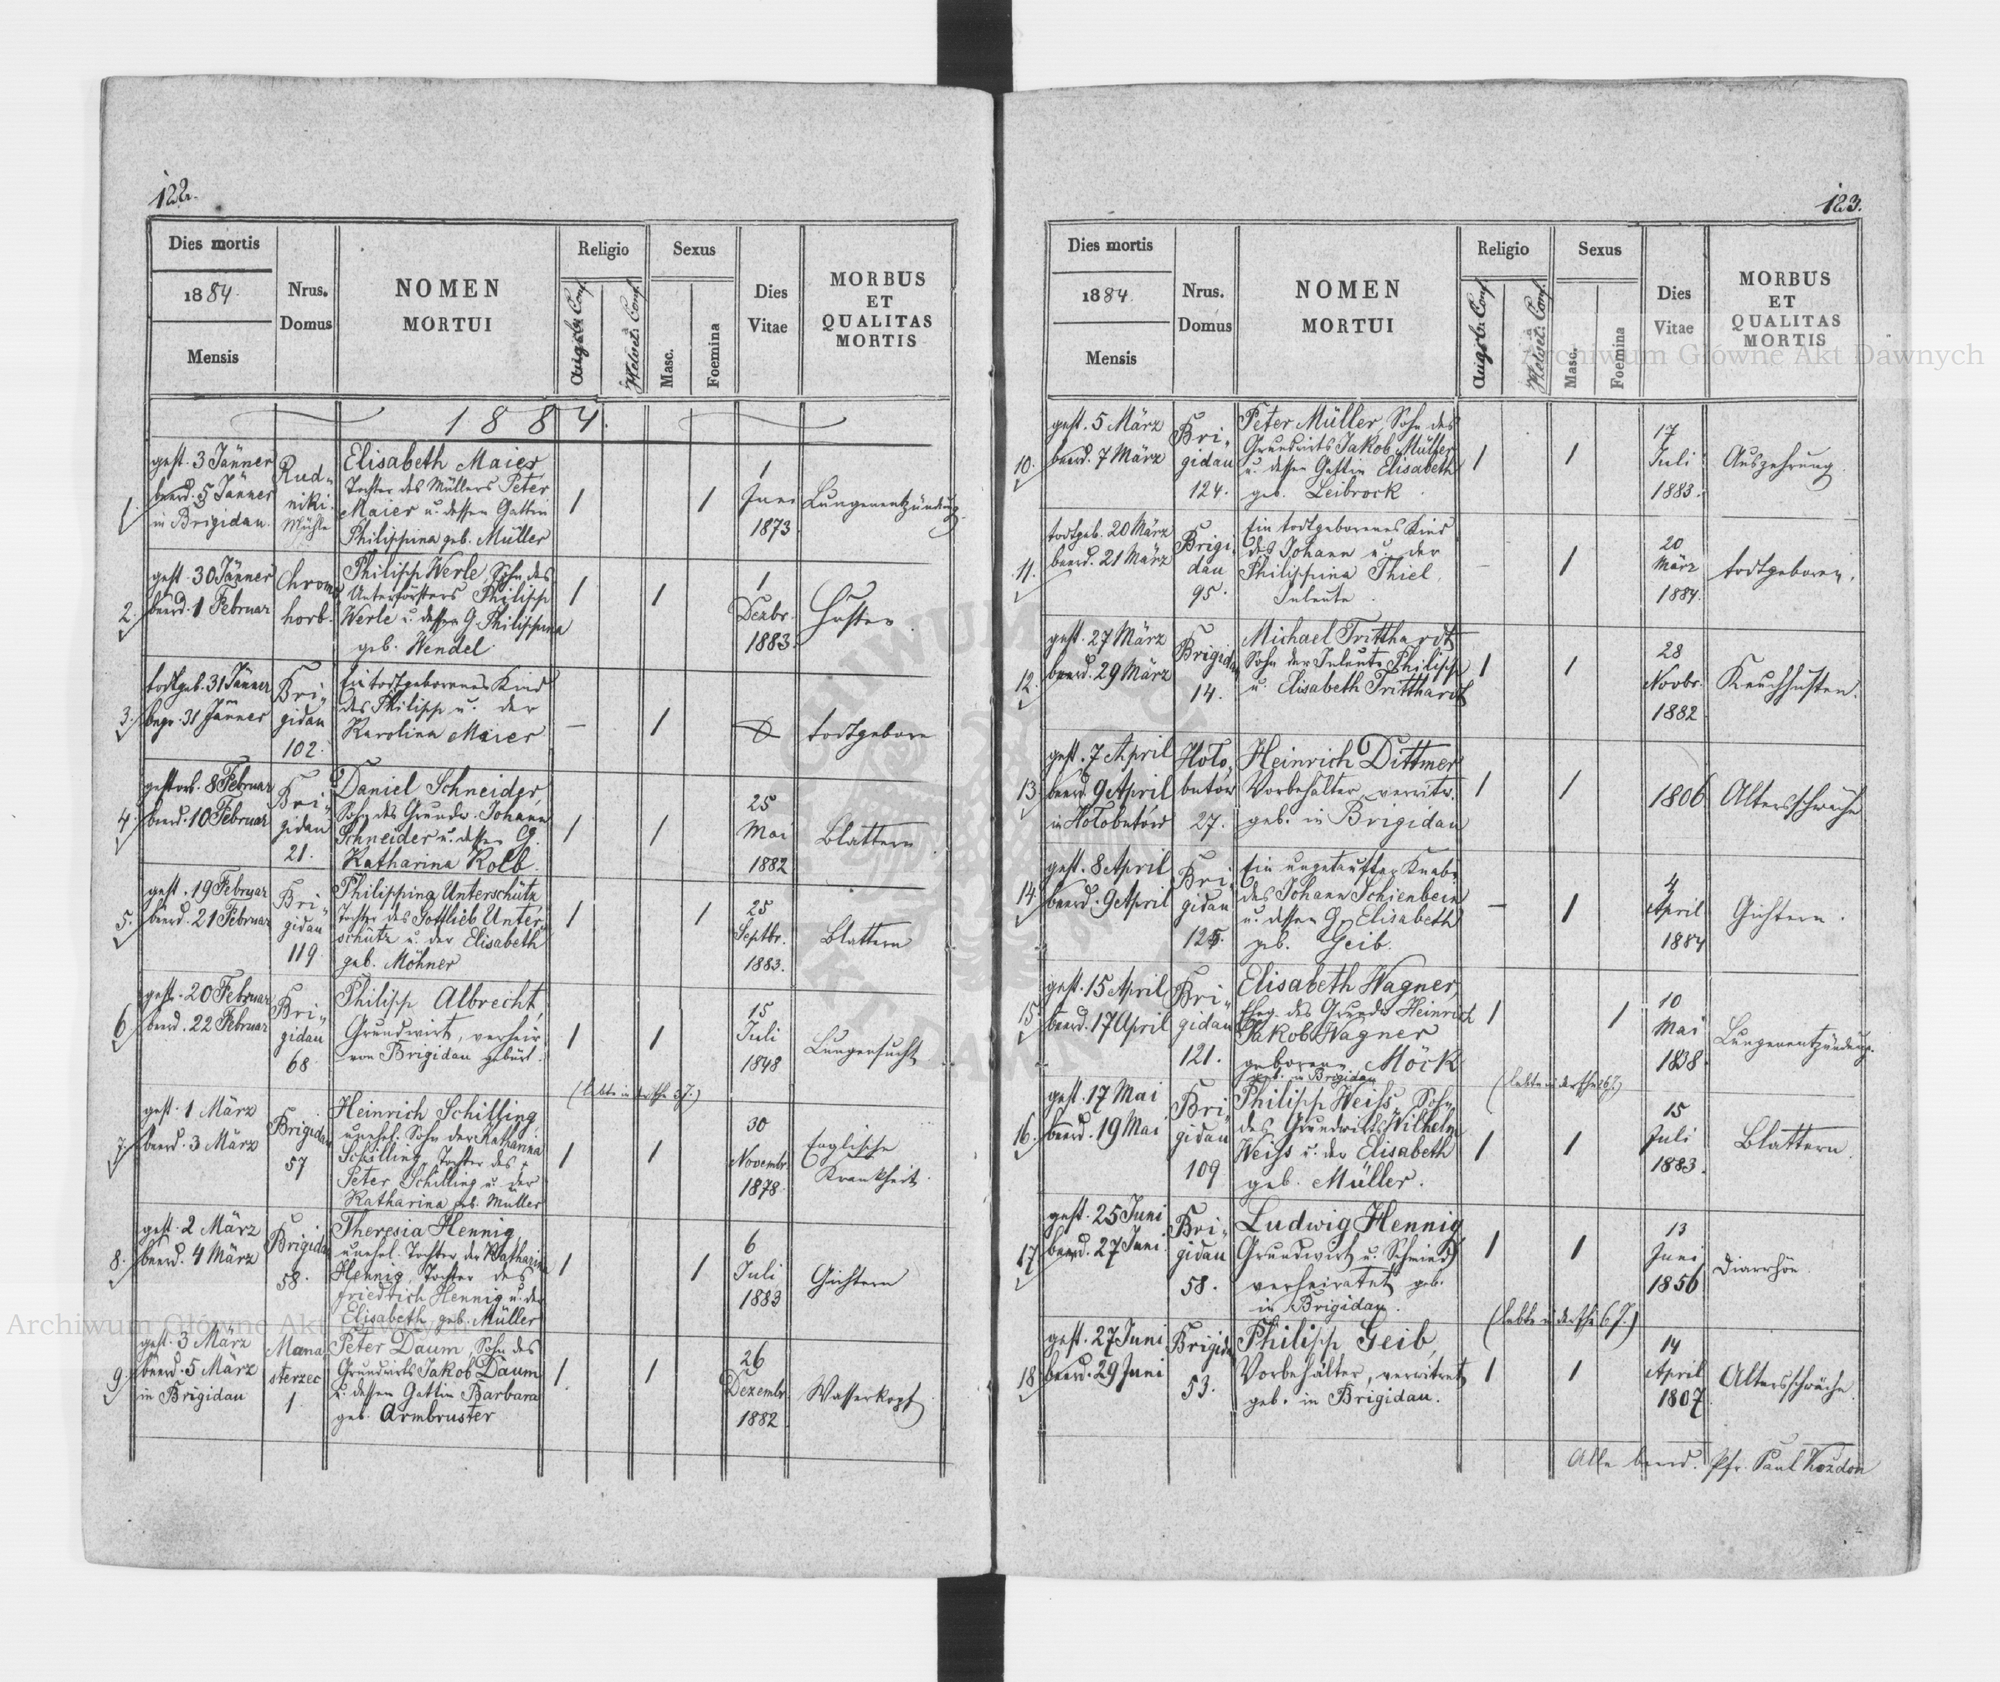 122.
Dies mortis
1884.
Mensis
Nrus.
Domus
NOMEN
MORTUI
Religio
Augsb. Conf.
Helvet. Conf.
Sexus
Masc.
Foemina
Dies
Vitae
MORBUS
ET
QUALITAS
MORTIS
1884.
1.
gest. 3 Jänner
beerd. 5 Jänner
in Brigidau.
Rud-
niki
Mühle
Elisabeth Maier
Tochter des Müllers Peter
Maier u. dessen Gattin
Philippina geb. Müller
1
1
1
Juni
1873
Lungenentzündung.
2.
gest. 30 Jänner
beerd. 1 Februar
Chromo
horb.
Philipp Werle, Sohn des
Unterforsters Philipp
Werle u. dessen G. Philippina
geb. Wendel
1
1
1
Dezbr.
1883.
Husten.
3.
todtgeb. 31 Jänner
begr. 31 Jänner
Bri-
gidau
102.
Ein todtgeborenes Kind
des Philipp u. der
Karolina Maier
–
1
todtgeboren
4.
gestorb. 8 Februar
beerd. 10 Februar
Bri-
gidau
21.
Daniel Schneider,
Sohn des Grundw. Johann
Schneider u. dessen G.
Katharina Kolb.
1
1
25
Mai
1882
Blattern.
5.
gest. 19 Februar
beerd. 21 Februar
Bri-
gidau
119
Philippina Unterschütz
Tochter des Gottlieb Unter-
schütz u. der Elisabeth
geb. Möhner
1
1
25
Septbr.
1883.
Blattern
6
gest. 20 Februar
beerd. 22 Februar
Bri-
gidau
68.
Philipp Albrecht,
Grundwirt, verheir.
von Brigidau gebürt.
1
1
15
Juli
1848
Lungensucht
(lebte in der Ehe 37.)
7.
gest. 1 März
beerd. 3 März
Brigidau
57
Heinrich Schilling,
unehel. Sohn der Katharina
Schilling, Tochter des +
Peter Schilling u. der
Katharina geb. Müller
1
1
30
Novembr.
1878.
Englische
Krankheit.
8.
gest. 2 März
beerd. 4 März
Brigidau
58.
Theresia Hennig
unehel. Tochter der Katharina
Hennig, Tochter des
Friedrich Hennig u. der
Elisabeth geb. Müller
1
1
6
Juli
1883
Gichtern
9.
gest. 3 März
beerd. 5 März
in Brigidau
Mana
sterzec
1.
Peter Daum, Sohn des
Grundwirts Jakob Daum
u. dessen Gattin Barbara
geb. Armbruster
1.
1
26
Dezembr.
1882
Wasserkopf.
123.
Dies mortis
1884.
Mensis
Nrus.
Domus
NOMEN
MORTUI
Religio
Augsb. Conf.
Helvet. Conf.
Sexus
Masc.
Foemina
Dies
Vitae
MORBUS
ET
QUALITAS
MORTIS
10.
gest. 5 März
beerd. 7 März
Bri-
gidau
124.
Peter Müller, Sohn des
Grundwirts Jakob Müller
u. dessen Gattin Elisabeth
geb. Leibrock.
1
1
17
Juli
1883.
Auszehrung
11.
todtgeb. 20 März
beerd. 21 März
Brigi-
dau
95.
Ein todtgeborenes Kind
des Johann u. der
Philippina Thiel,
Inleute.
–
1
20
März
1884.
todtgeboren.
12.
gest. 27 März
beerd. 29 März
Brigidau
14.
Michael Tritthardt
Sohn der Inleute Philipp
u. Elisabeth Tritthardt
1
1
28
Novbr.
1882
Keuchhusten.
13.
gest. 7 April
beerd. 9 April
in Hołobutów
Hoło-
butów
27.
Heinrich Dittmer
Vorbehälter, verwitw.
geb. in Brigidau
1
1
1806
Altersschwäche
14.
gest. 8 April
beerd. 9 April
Bri-
gidau
125.
Ein ungetaufter Knabe
des Johann Schienbein
u. dessen G. Elisabeth
geb. Geib.
–
1
4
April
1884
Gichtern.
15.
gest. 15 April
beerd. 17 April
Bri-
gidau
121.
Elisabeth Wagner,
Eheg. des Grundw. Heinrich
Jakob Wagner
geborene Möck
geb. in Brigidau
1
1
10
Mai
1838.
Lungenentzündung.
16.
gest. 17 Mai
beerd. 19 Mai
Bri-
gidau
109
Philipp Weiss, Sohn
des Grundwirts Wilhelm
Weiss u. der Elisabeth
geb. Müller.
1
1
15
Juli
1883.
Blattern.
17.
gest. 25 Juni
beerd. 27 Juni
Bri-
gidau
58.
Ludwig Hennig
Grundwirt u. Schmied,
verheiratet geb.
in Brigidau.
1
1
13
Juni
1856
Diarrhöe
18
gest. 27 Juni
beerd. 29 Juni
Brigidau
53.
Philipp Geib,
Vorbehälter, verwitwet
geb. in Brigidau.
1
1
14
April
1807.
Altersschwäche.
Alle beerd. Pfr. Paul Kozdon
Archiwum Główne Akt Dawnych
Archiwum Główne Akt Dawnych
ARCHIWUM GŁÓWNE AKT DAWNYCH